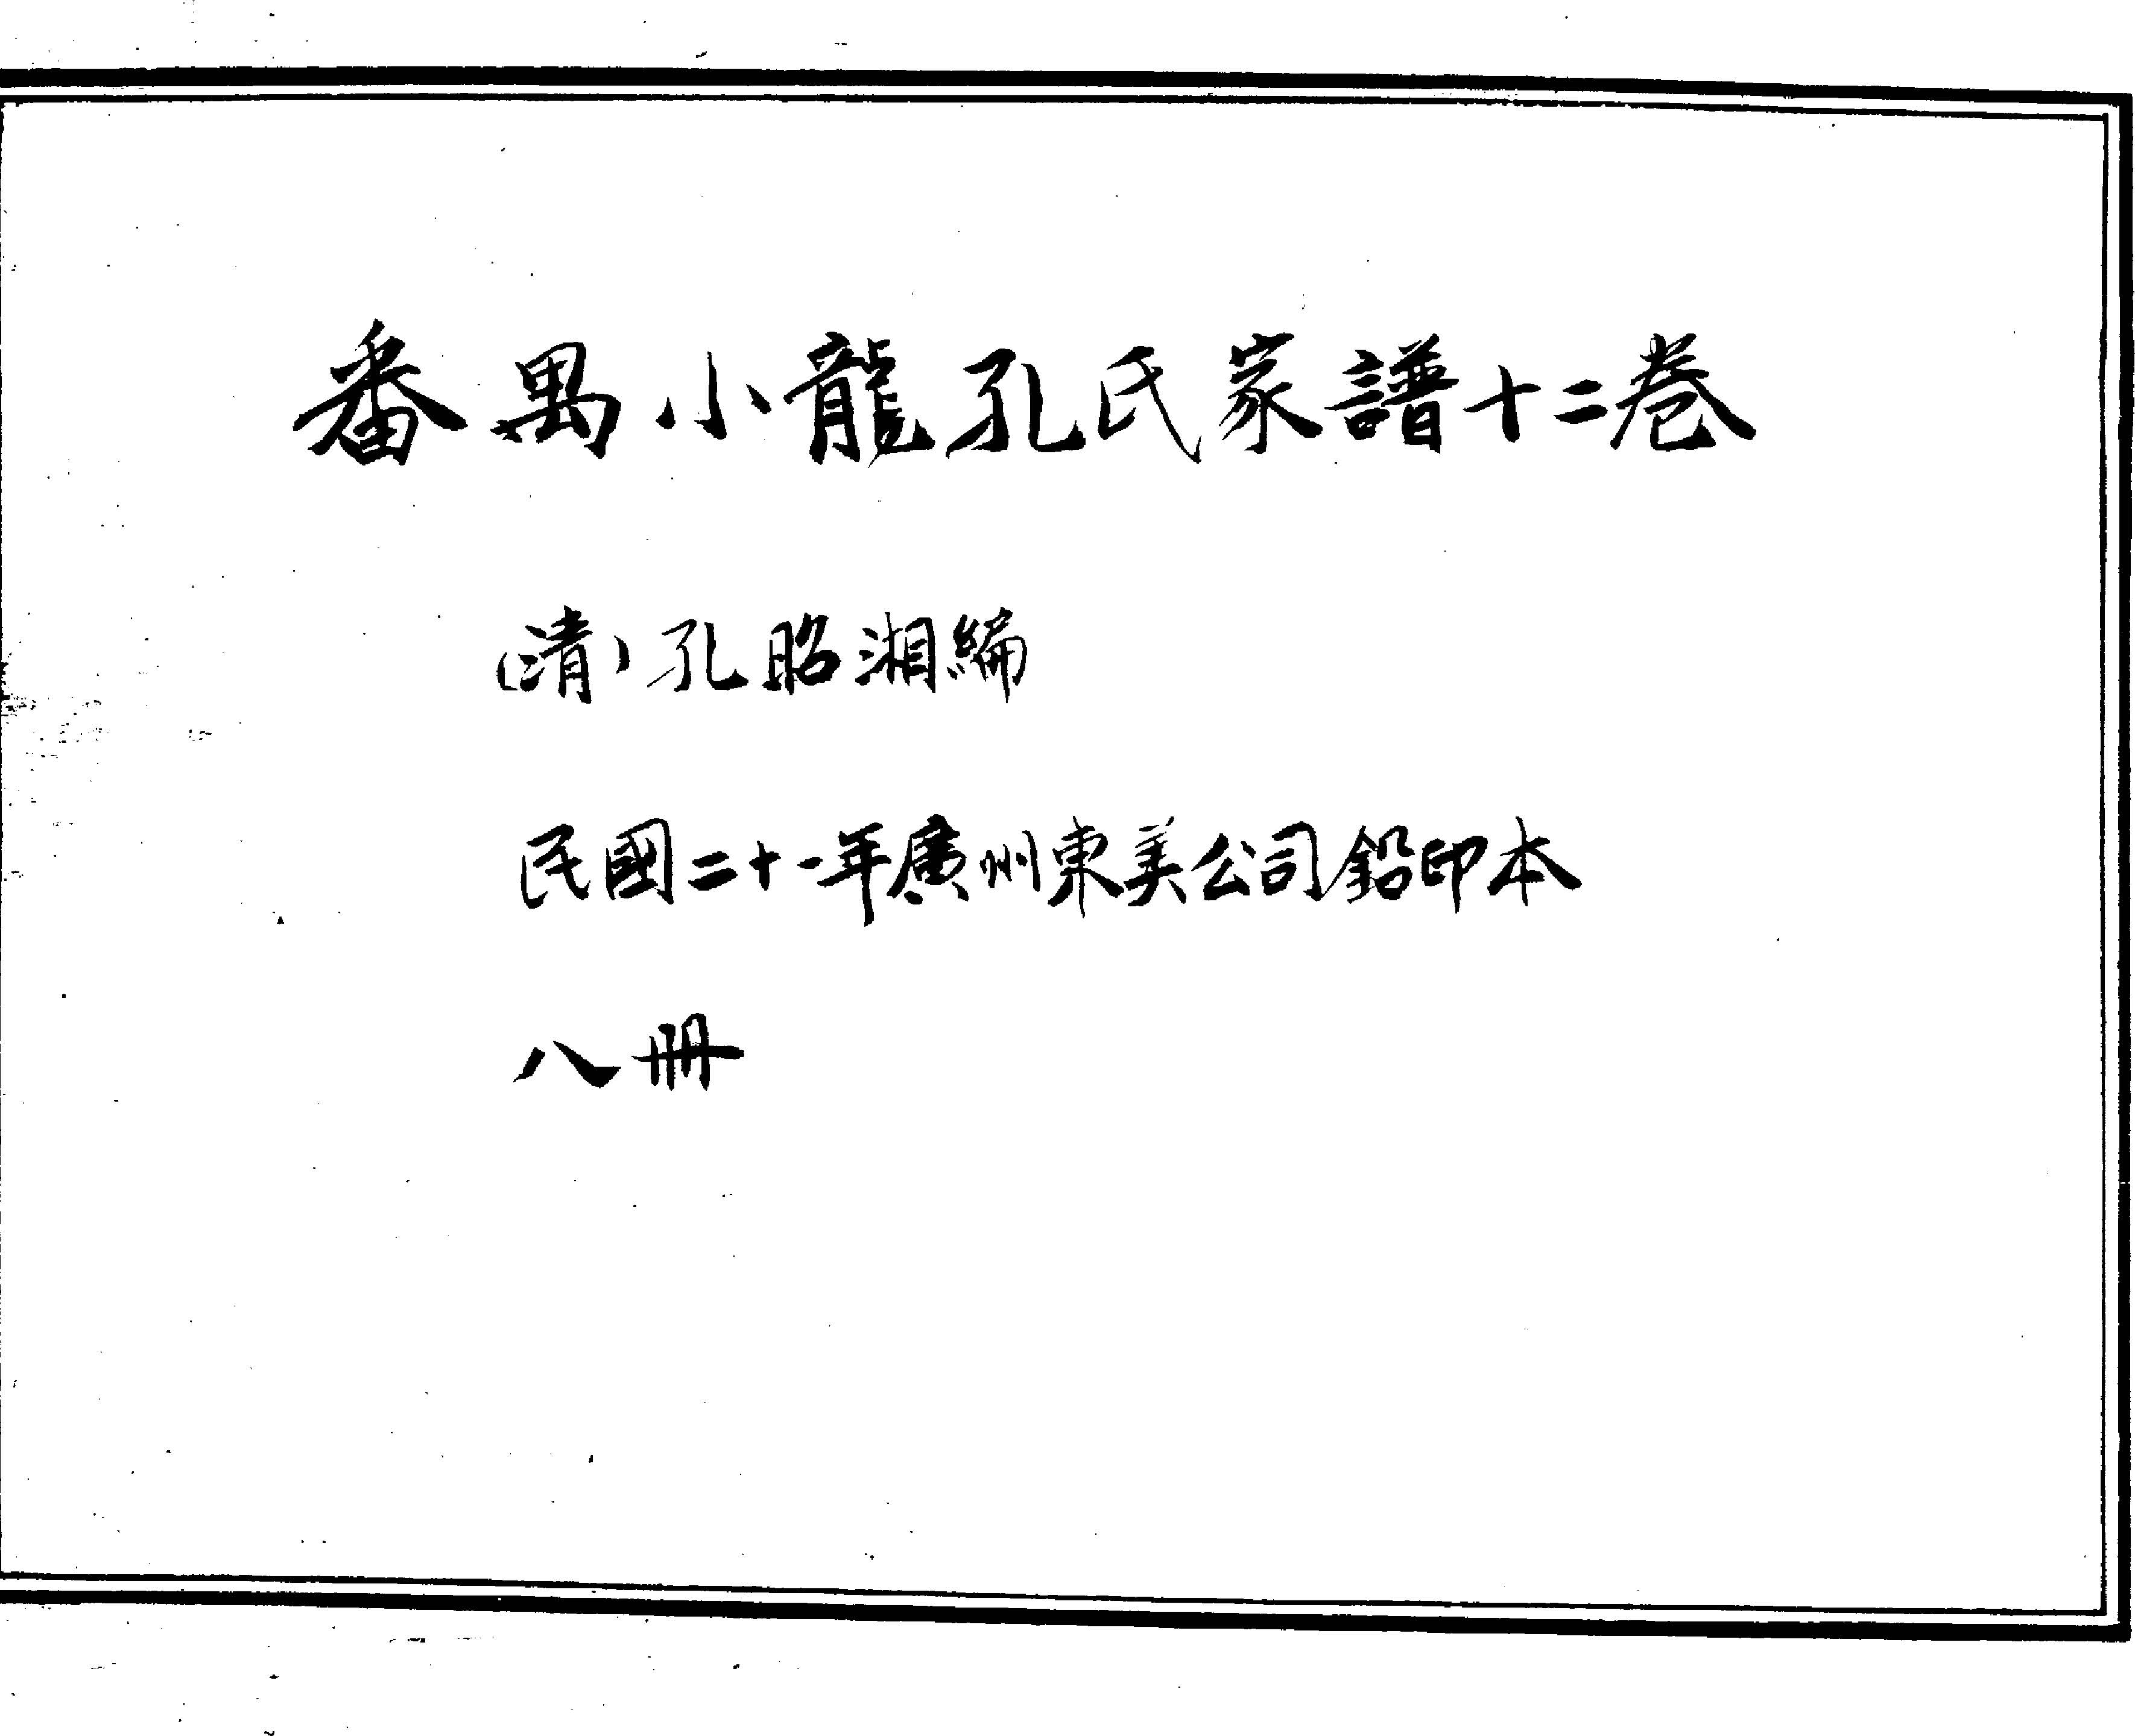 番禺小龍孔氏家譜十二卷
(清)孔昭湘編
民國二十一年廣州東美公司鉛印本
八冊